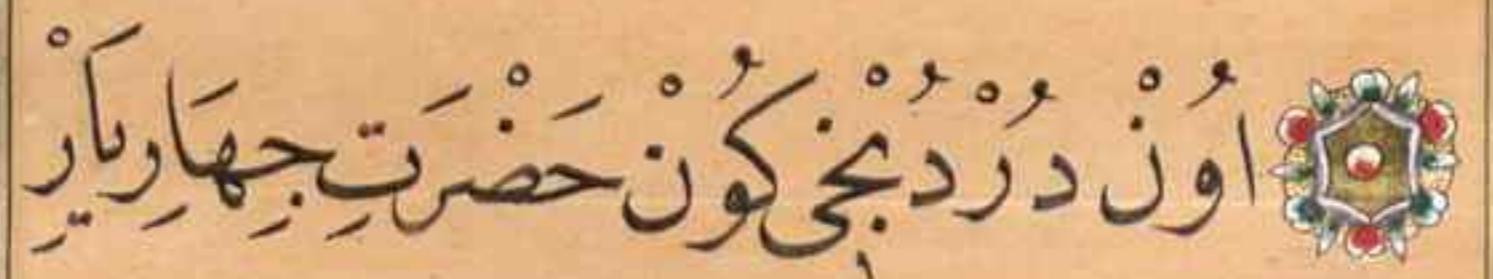 اُونْ دُرْدُنْجِى كُونْ حَضْرَتِ جِهَارِ يَارْ